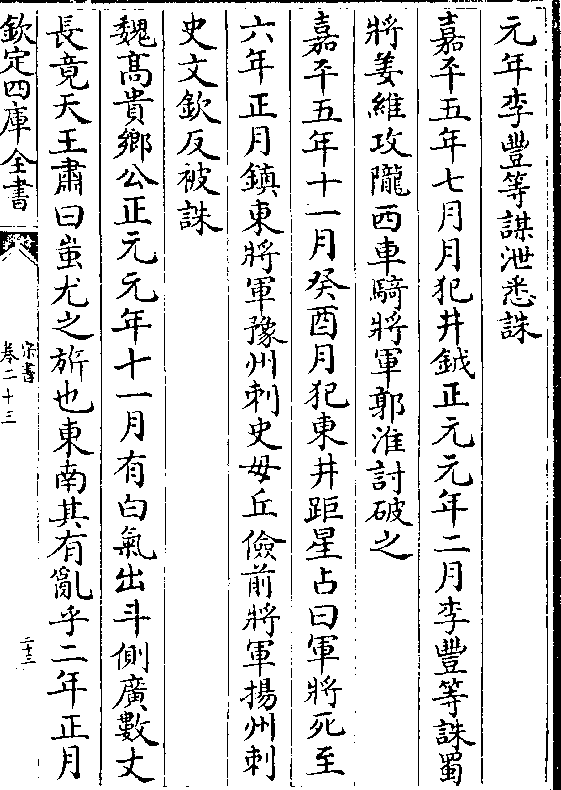 元年李豐等謀泄悉誅
嘉平五年七月月犯井鉞正元元年二月李豐等誅蜀
將姜維攻隴西車騎將軍郭淮討破之
嘉平五年十一月癸酉月犯東井距星占曰軍將死至
六年正月鎮東將軍豫州刺史毋丘儉前將軍揚州刺
史文欽反被誅
魏髙貴鄉公正元元年十一月有白氣出斗側廣數丈
長竟天王肅曰蚩尤之旂也東南其有亂乎二年正月
欽定四庫全書
宋書
卷二十三
二十三